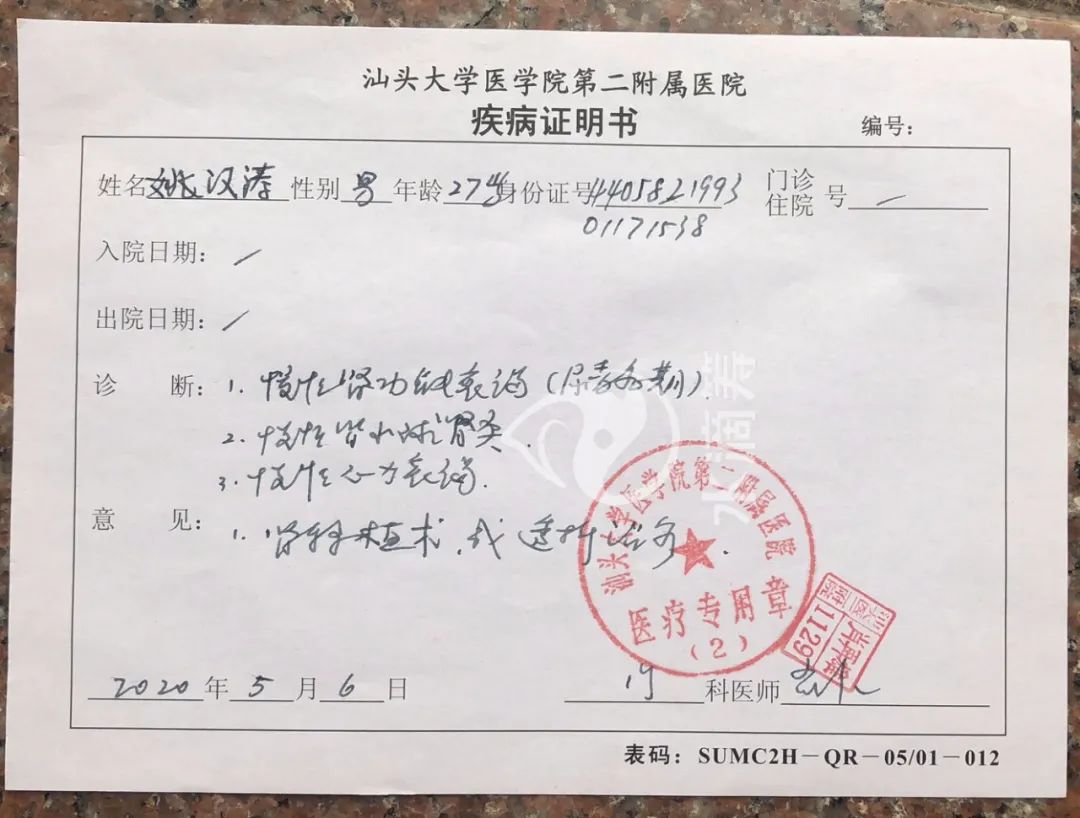 汕头大学医学院第二附属医院
疾病证明书
编号：
姓名 姚汉涛 性别 男 年龄 27岁 身份证号 4405821993 门诊 住院 号 /
01171538
入院日期： /
出院日期： /
诊 断： 1. 慢性肾功能衰竭（尿毒症期）
2. 慢性肾小球肾炎.
3. 慢性心力衰竭.
意 见： 1. 肾移植术, 或透析治疗.
水滴筹
汕头大学医学院第二附属医院
医疗专用章
（2）
1129
2020 年 5 月 6 日 内 科医师
表码：SUMC2H－QR－05/01－012